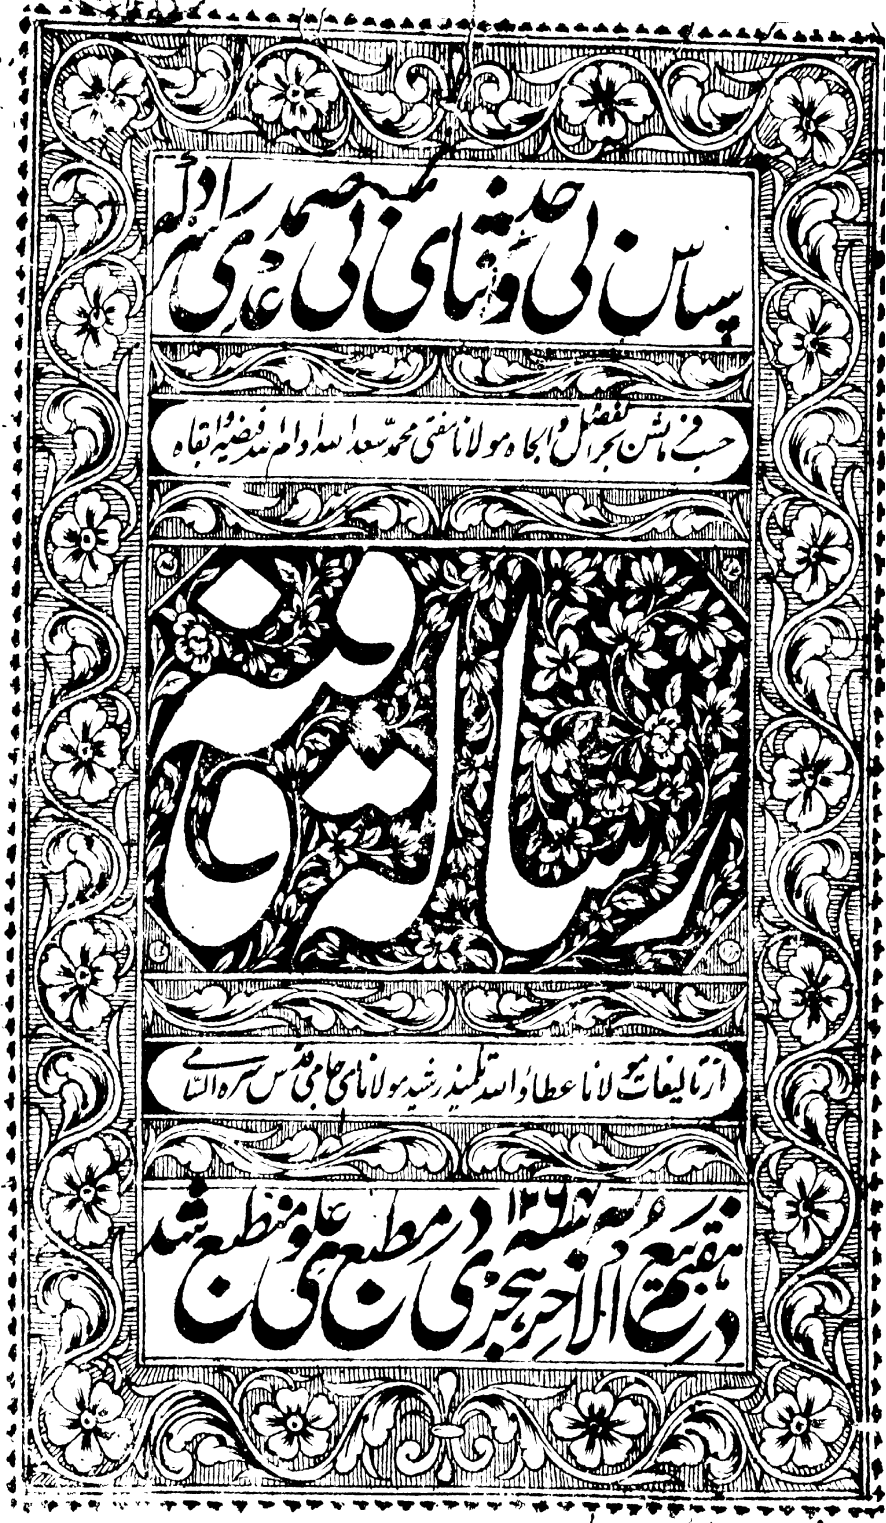 سپاس بی حد و ثنای بی عد مر صمدی را که
حسب فرمایش بحر الفضل و الجاه مولانا مفتی محمد سعد الله ادام الله فیضه و ابقاه
رساله قافیه
از تالیفات مولانا عطاء الله تلمیذ رشید مولانای جامی قدس سره السامی
در هفتم ربیع الآخر سنه ۱۲۶۷ هجری در مطبع علوی منطبع شد